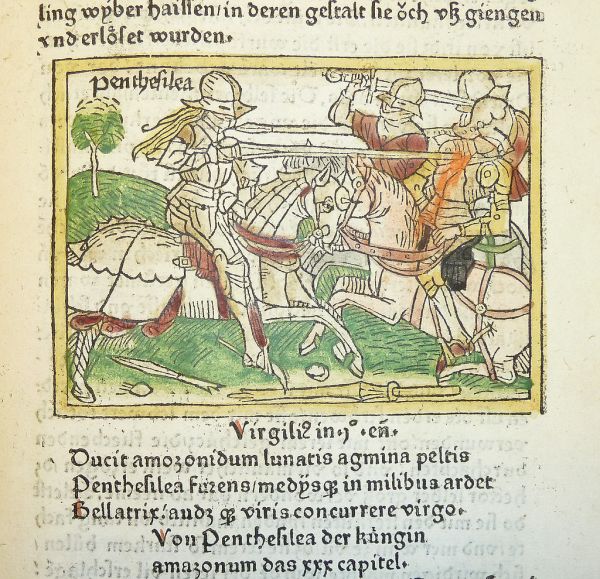 ling wyber haissen/in deren gestalt sie och vß giengen
vnd erlöset wurden.
Penthesilea
Virgiliꝰ in .jº. eñ.
Ducit amozonidum lunatis agmina peltis
Penthesilea furens/medijsqꝫ in milibus ardet
Bellatrix/audꝫ qꝫ viris concurrere virgo.
Von Penthesilea der küngin
amazonum das xxx capitel.